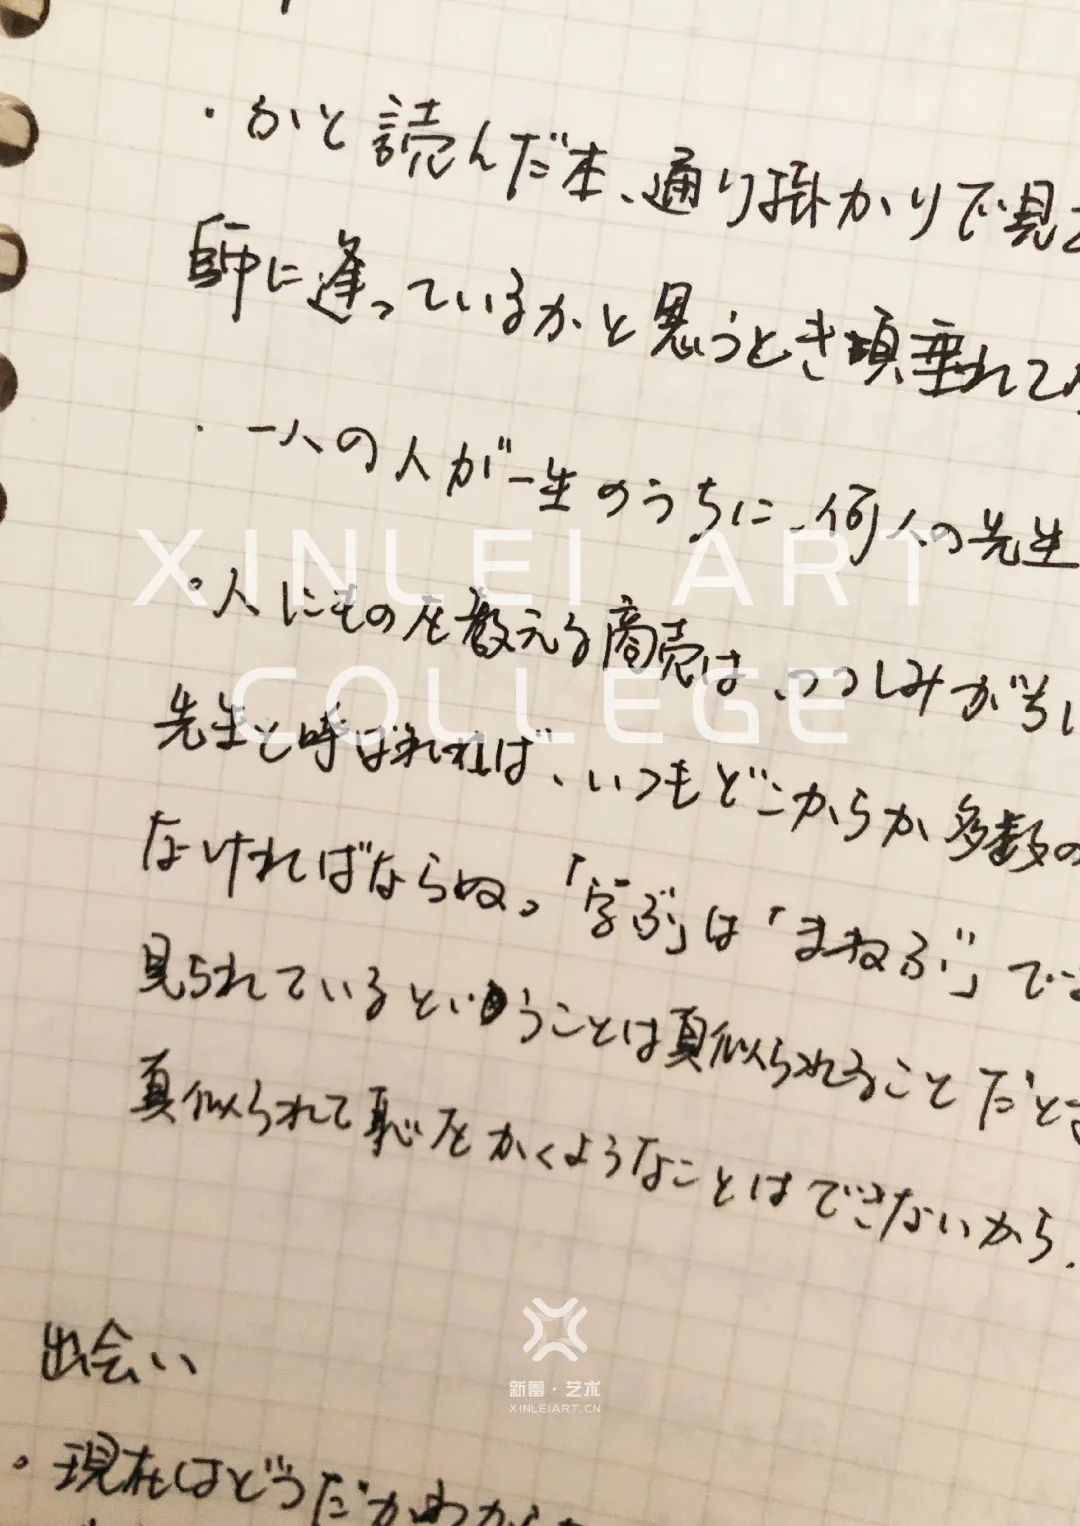 ・ふと読んだ本、通り掛かりで見
師に逢っているかと思うとき項垂れて
・一人の人が一生のうちに、何人の先生
XINLEI ART
・人にものを教える商売は、つつしみがちに
COLLEGE
先生と呼ばれれば、いつもどこからか多数の
なければならぬ。「学ぶ」は「まねぶ」で
見られているということは真似られることだとき
真似られて恥をかくようなことはできないから、
新蕾・艺术
XINLEIART.CN
出会い
・現在はどうだかわから